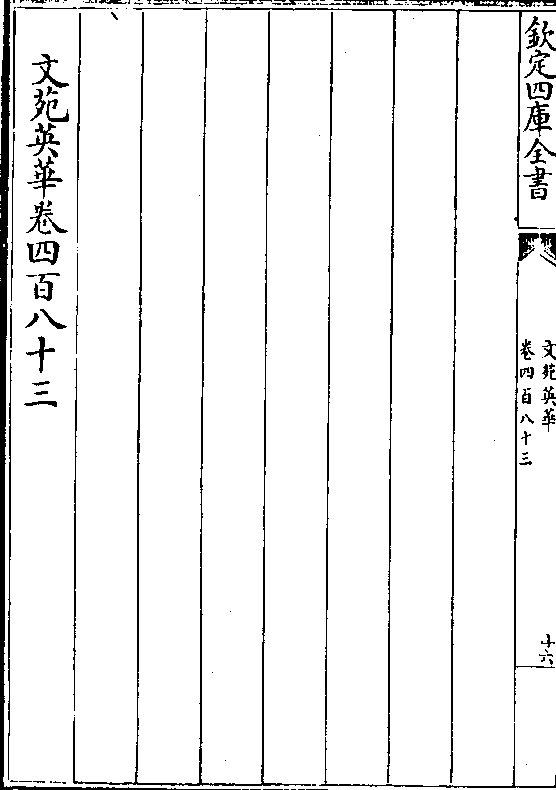 欽定四庫全書
文苑英華
卷四百八十三
十六
文苑英華卷四百八十三